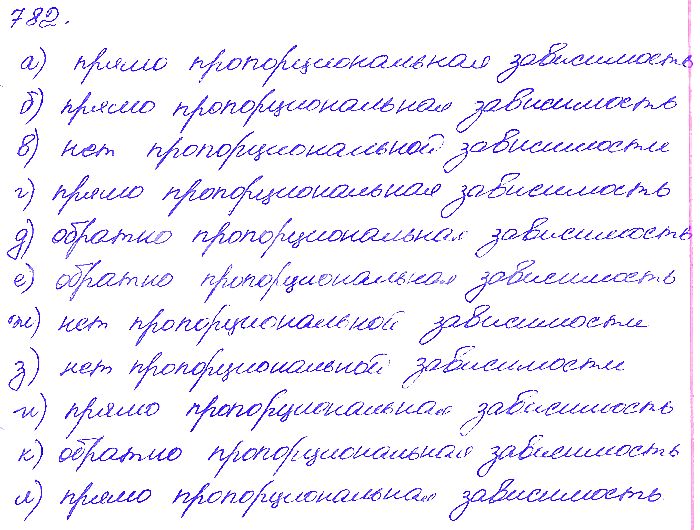 782.
а) прямо пропорциональная зависимость
б) прямо пропорциональная зависимость
в) нет пропорциональной зависимости
г) прямо пропорциональная зависимость
д) обратно пропорциональная зависимость
е) обратно пропорциональная зависимость
ж) нет пропорциональной зависимости
з) нет пропорциональной зависимости
и) прямо пропорциональная зависимость
к) обратно пропорциональная зависимость
л) прямо пропорциональная зависимость